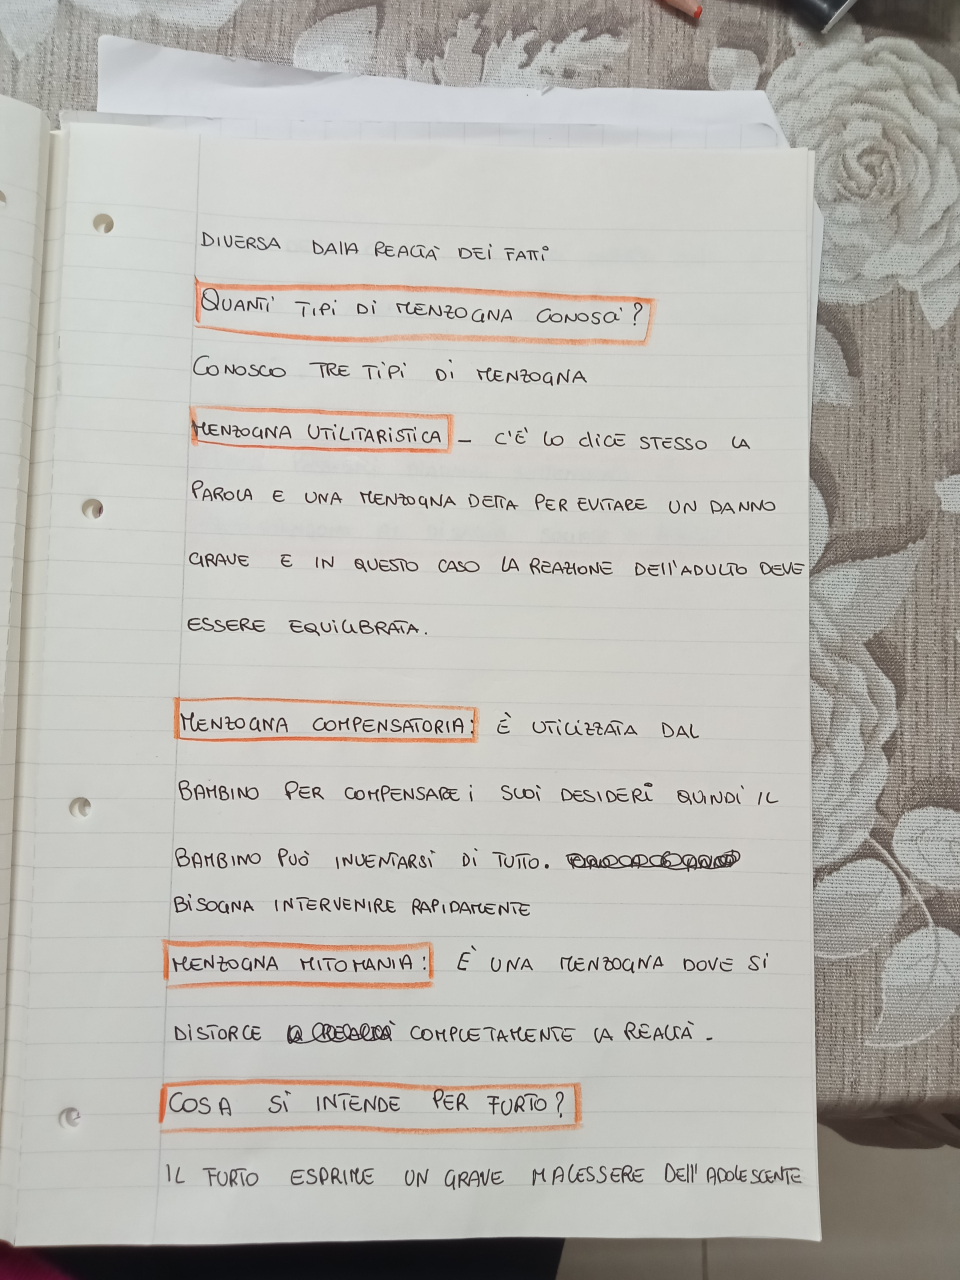 DIVERSA DALLA REALTÀ DEI FATTI
QUANTI TIPI DI MENZOGNA CONOSCI?
CONOSCO TRE TIPI DI MENZOGNA
MENZOGNA UTILITARISTICA - C'È LO DICE STESSO LA
PAROLA E UNA MENZOGNA DETTA PER EVITARE UN DANNO
GRAVE E IN QUESTO CASO LA REAZIONE DELL'ADULTO DEVE
ESSERE EQUILIBRATA.
MENZOGNA COMPENSATORIA: È UTILIZZATA DAL
BAMBINO PER COMPENSARE I SUOI DESIDERI QUINDI IL
BAMBINO PUÒ INVENTARSI DI TUTTO.
BISOGNA INTERVENIRE RAPIDAMENTE
MENZOGNA MITOMANIA: È UNA MENZOGNA DOVE SI
DISTORCE COMPLETAMENTE LA REALTÀ.
COSA SI INTENDE PER FURTO?
IL FURTO ESPRIME UN GRAVE MALESSERE DELL'ADOLESCENTE